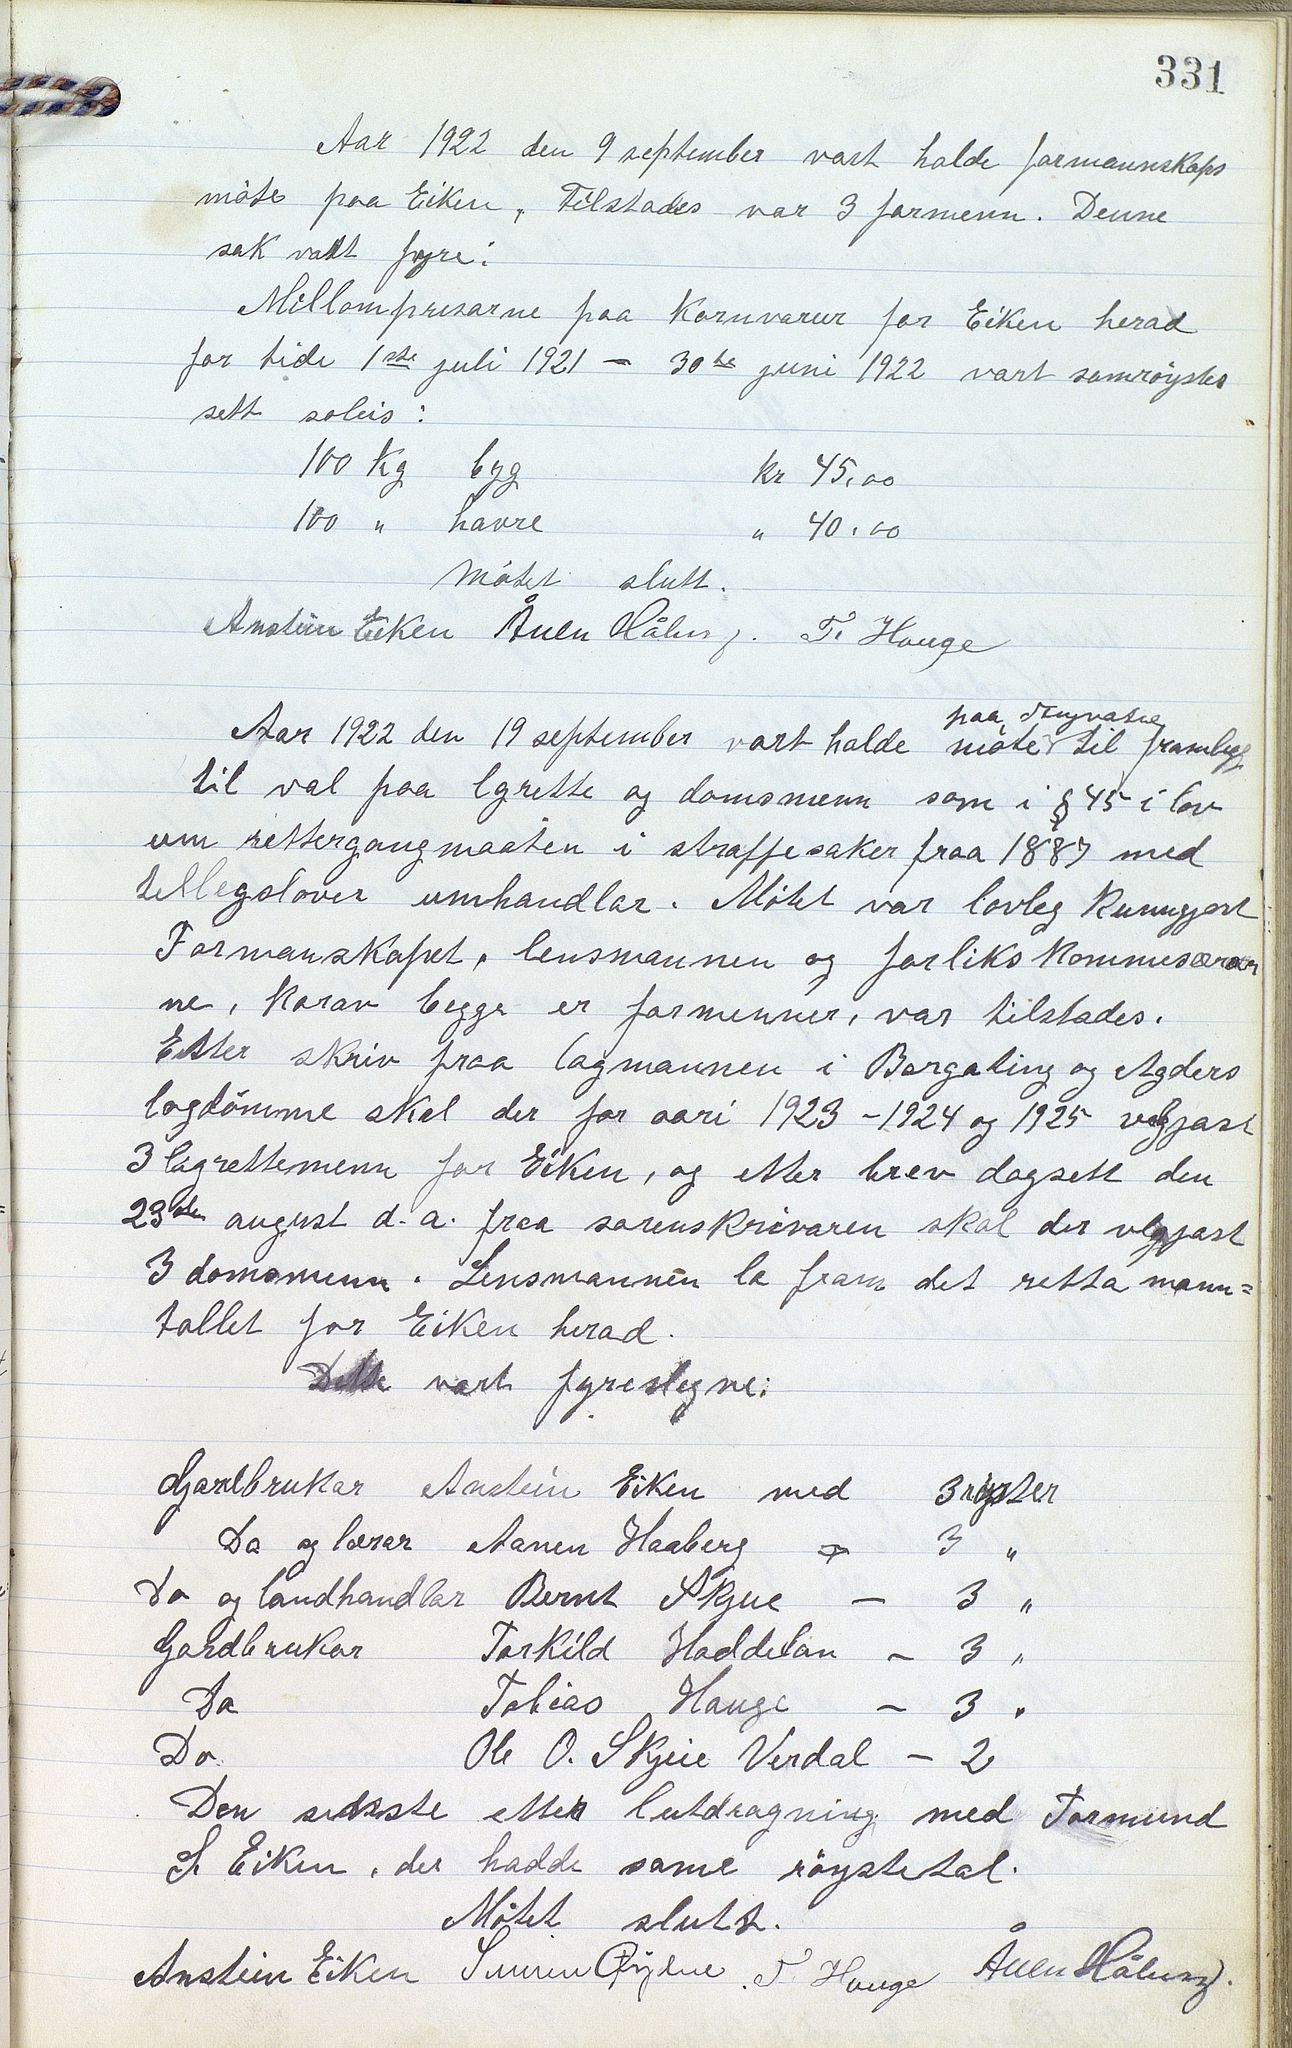 331
Aar 1922 den 9 september vart halde formannskaps
møte paa Eiken. Tilstades var 3 formenn. Denne
sak vart fyre:
Millomprisarne paa kornvarur for Eiken herad
for tidi 1ste juli 1921 – 30te juni 1922 vart samrøystes
sett soleis:
100 kg byg kr 45,00
100 " havre " 40,00
Møtet slutt.
Anstein Eiken Ånen Håberg. T. Hauge
Aar 1922 den 19 september vart halde møte paa til framlegg
til val paa lgrette og domsmenn som i § 45 i lov
um rettergangmaaten i straffesaker fraa 1887 med
tellegslover umhandlar. Møtet var lovleg kunngjort
Formanskapet, lensmannen og forliks kommisærar
ne, korav begge er formenner, var tilstades.
Etter skriv fraa lagmannen i Borgating og Agders
lagdømme skal der for aari 1923 – 1924 og 1925 velgjast
3 lagrettemenn for Eiken, og etter brev dagsett den
23de august d.a. fraa sorenskrivaren skal der velgjast
3 domsmenn. Lensmannen la fram det retta mann=
tallet for Eiken herad.
Dette vart fyreslegne:
Gardbrukar Anstein Eiken med 3 røyster
Do og lærar Aanen Haaberg – 3 "
Do og landhandlar Bernt Skjeie – 3 "
Gardbrukar Torkild Haddelan – 3 "
Do Tobias Hauge – 3 "
Do. Ole O. Skjeie Verdal – 2
Den sidste etter lutdragning med Tormund
S. Eiken, der hadde same røystetal.
Møtet slutt.
Anstein Eiken T. Hauge Ånen Håberg.